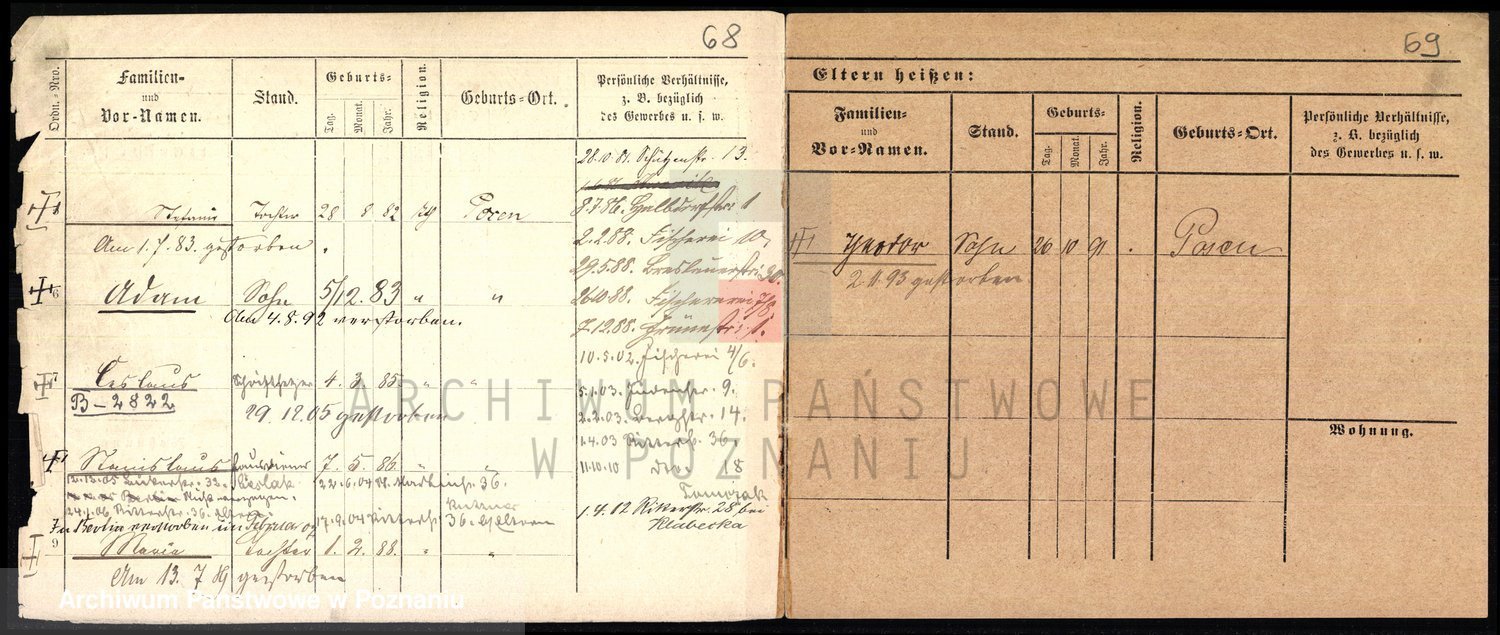 68
Ordn.-Nro.
Familien- und Vor-Namen.
Stand.
Geburts-
Tag.
Monat.
Jahr.
Religion.
Geburts-Ort.
Persönliche Verhältnisse, z. B. bezüglich des Gewerbes u. s. w.
28.10.81. Schützenstr. 13.
Stefanie Tochter 28 8 82 kth Posen
8.7.86. Halbdorfstr. 1
Am 1.7.83. gestorben
2.2.88. Fischerei 10,
29.5.88. Breslauerstr. 30.
6 Adam Sohn 5/12.83 " "
26.10.88. Fischerei 7/8
Am 4.8.92 verstorben.
7.12.88. Grünestr. 1.
10.5.02. Fischerei 4/6.
7 Ceslaus Schriftsetzer 4. 3. 85 " "
5.1.03. Judenstr. 9.
B-2822
29.12.05 gestorben
2.2.03. Bergstr. 14.
1.4.03 Ritterstr. 36,
Stanislaus Hausdiener 7. 5. 86. " "
11.10.10 dto. 18
22.6.04 36.
24.1.06 Ritterstr. 36. Eltern
17.9.04 Ritterstr. 36. b/Eltern
In Berlin verstorben im Februar 07
1.4.12 Ritterstr. 28 bei
Klabecka
9 Maria Tochter 1. 2. 88. " "
Am 13. 7 89 gestorben
69
Eltern heißen:
Familien- und Vor-Namen.
Stand.
Geburts-
Tag.
Monat.
Jahr.
Religion.
Geburts-Ort.
Persönliche Verhältnisse, z. B. bezüglich des Gewerbes u. s. w.
Theodor Sohn 26 10 91 . Posen
2.11.93 gestorben
Wohnung.
ARCHIWUM PAŃSTWOWE
W POZNANIU
Archiwum Państwowe w Poznaniu